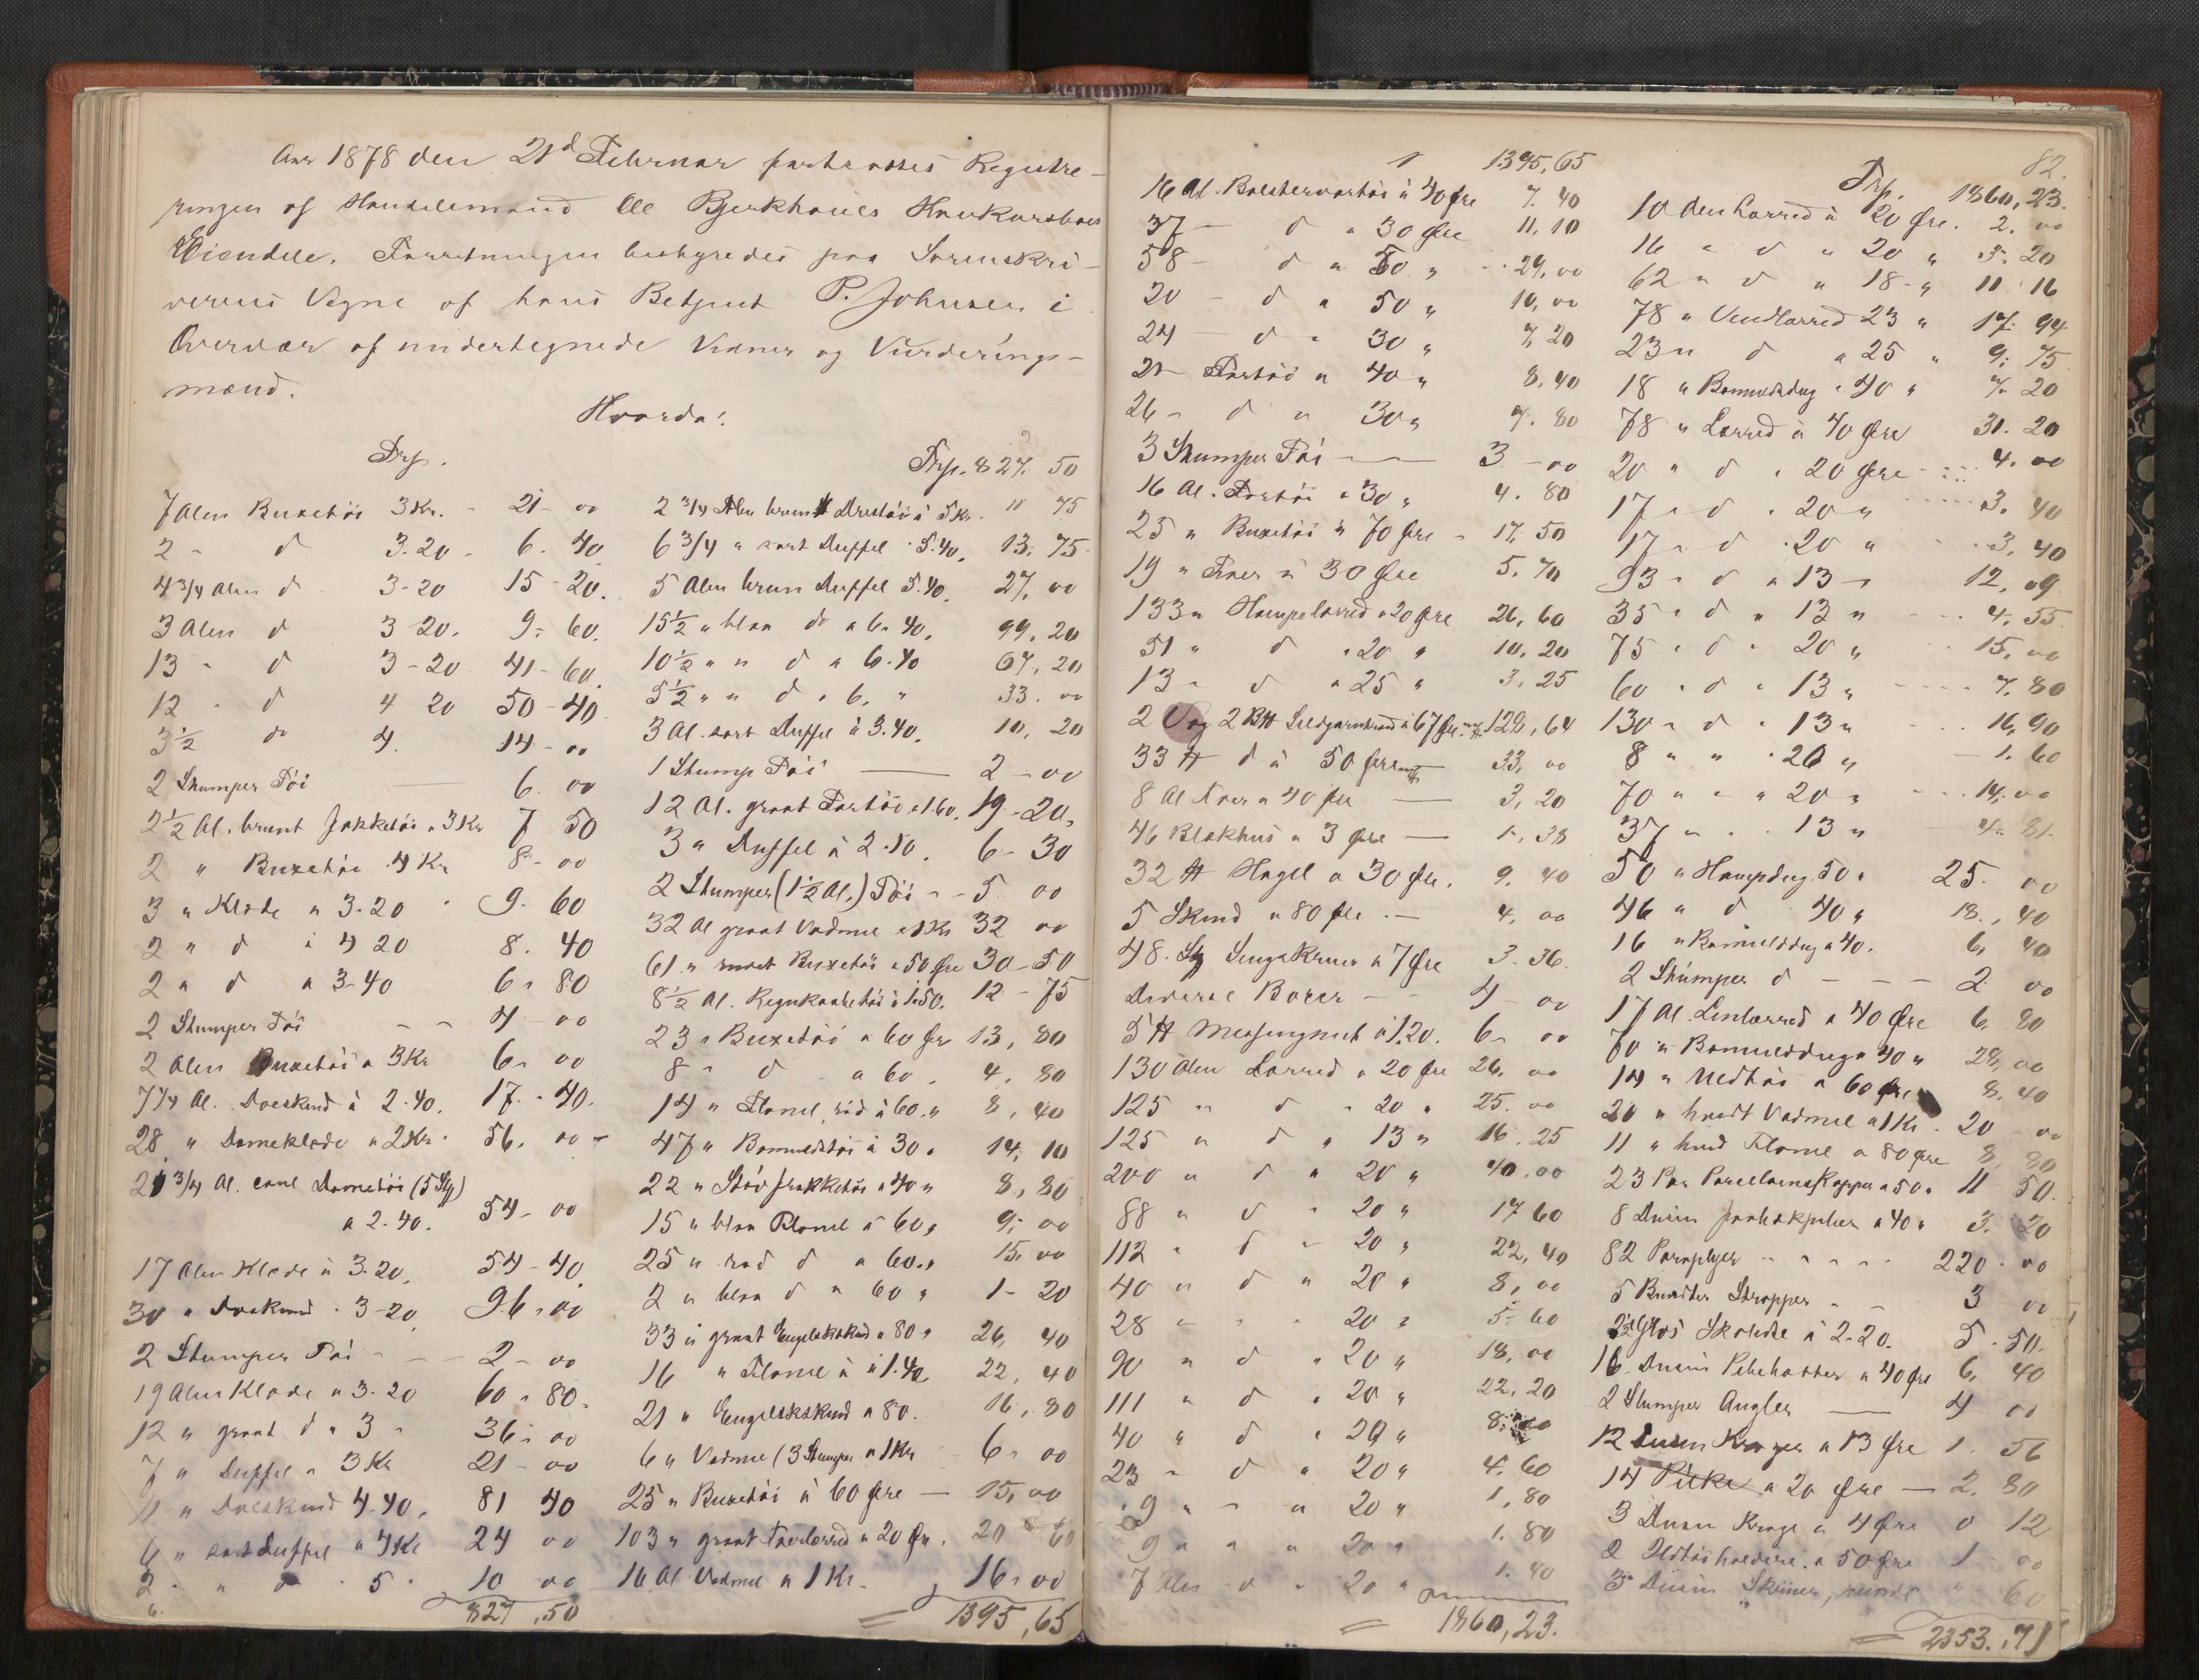 Aar 1878 den 21d Februar fortsattes Registre-
ringen af Handelsmand Ole Bjerkhaules Konkursboes
Eiendele. Forretningen bestyredes paa Sorenskri-
verens Vegne af hans Betjent P. Johnsen i
Overvær af undertegnede Vidner og Vurderings-
mænd.
Hvorda:
Trp.
7 Alen Buxetøi 3 Kr. - 21 - 00
2 - d 3.20 - 6. 40
4 3/4 Alen d 3-20 15-20.
3 Alen d 3 20. 9. 60.
13 - d 3-20 41-60.
12 - d 4 20 50-40
3 1/2 do 4. 14-00
2 Stumper Tøi — 6. 00
2 1/2 Al. brunt Jakketøi " 3 Kr 7 50
2 " Buxetøi 4 Kr 8-00
3 " Klæde a 3.20 9. 60
2 " d à 4 20 8. 40
2 " d a 3-40 6 " 80
2 Stumper Tøi - - 4-00
2 Alen Buxetøi a 3 Kr 6 " 00
7 1/4 Al. Doeskind à 2.40. 17. 40.
28 " Dameklæde a 2 Kr. 56. 00
21 3/4 Al. coul Dametøi (5 Stk)
a 2.40. 54-00
17 Alen Klæde à 3.20. 54-40
30 " Doeskind 3-20 96 " 00
2 Stumper Tøi - - 2-00
19 Alen Klæde a 3.20 60 " 80.
12 " graat d " 3 " 36 " 00
7 " Duffel " 3 Kr 21-00
11 " Doeskind 4-40. 81 40
6 " sort Duffel a 4 Kr 24 00
2 " " d 5 " 10 00
827,50
Trp. 827. 50
2 3/4 Alen brunt Drestøi à 5 Kr. 11 75
6 3/4 " sort Duffel 5.40. 13. 75
5 Alen brun Duffel 5.40. 27. 00
15 1/2 " blaa do a 6.40. 99. 20
10 1/2 " " d a 6.40 67. 20
5 1/2 " " d " 6. " 33. 00
3 Al. sort Duffel à 3.40. 10, 20
1 Stump Tøi — 2-00
12 Al. graat Tøi a 1.60. 19-20.
3 " Duffel à 2.10. 6-30
2 Stumper (1 1/2 Al.) Tøi - - 5 00
32 Al graat Vadmel a 1 Kr 32 00
61 " Buxetøi a 50 Øre 30-50
8 1/2 Al. Regnkaabetøi à 1.50. 12-75
23 " Buxetøi a 60 Øre 13, 80
8 " d a 60. 4. 80
14 " Flonel, rød à 60 " 8, 40
47 " Bomuldstøi à 30 " 14, 10
22 " Støvfrakketøi " 40 " 8, 80
15 " blaa Flonel à 60 " 9, 00
25 " rød d a 60 " 15. 00
2 " blaa d a 60 " 1-20
33 " graat Engelskskind a 80 " 26, 40
16 " Flonel à 1.40. 22, 40
21 " Engelskskind a 80. 16, 80
6 " Vadmel (3 Stumper a 1 Kr 6 " 00
25 " Buxetøi à 60 Øre — 15, 00
103 " graat Foerlærred a 20 Øre. 20 60
16 Al Vadmel a 1 Kr. 16 " 00
= 1395,65
82.
1395,65
16 Al. Bolstervartøi à 40 Øre 7. 40
37 — d " 30 Øre 11, 10
58 — d a 50 " 29, 00
20 — d a 50 " 10, 00
24 d " 30 " 7, 20
21 — Fortøi a 40 " 8, 40
26 — d a 30 " 7. 80
3 Stumper Tøi — 3-00
16 Al. Fortøi a 30 " 4. 80
25 " Buxetøi à 70 Øre - 17, 50
19 " Foer à 30 Øre 5. 70
133 " Hampelærred a 20 Øre 26, 60
51 " d " 20 " 10. 20
13 " d a 25 " 3, 25
2 Vog 2 B℔ Sildgarnstraad à 67 Øre 128, 64
33 ℔ d à 50 Øre 33, 00
8 Al Foer a 40 Øre — 3, 20
46 Blakhus a 3 Øre — 1, 38
32 ℔ Hagel a 30 Øre. 9. 40
5 Skind a 80 Øre — 4. 00
48. Stk a 7 Øre 3.36.
Diverse Borer — 4-00
5 ℔ Messingnet à 1.20. 6-00
130 Alen Lærred a 20 Øre 26. 00
125 " d " 20 " 25. 00
125 " d " 13 " 16. 25
200 " d a 20 " 40.00
88 " d " 20 " 17 60
112 " d " 20 " 22, 40
40 " d " 20 " 8, 00
28 " " 20 " 5. 60
90 " d " 20 " 18, 00
111 " d " 20 " 22, 20
40 " d " 20 " 8, 00
23 " d " 20 " 4. 60
9 " " " 20 " 1, 80
9 " " " 20 " 1. 80
7 Alen d " 20 " 1. 40
= 1860,23.
Trp. 1860, 23.
10 Alen Lærred à 20 Øre. 2. 00
16 " d " 20 " 3. 20
62 " d " 18 " 11 16
78 " Lærred 23 " 17. 94
23 " d a 25 " 9. 75
18 " Bomuldsdug " 40 " 7. 20
78 " Lærred à 40 Øre 31. 20
20 " d " 20 Øre 4. 00
17 " d " 20 " 3. 40
17 " d " 20 " 3, 40
93 " d a 13 " 12, 09
35 " d " 13 " 4, 55
75 " d " 20 " 15, 00
60 " d " 13 " 7. 80
130 " d " 13 " 16, 90
8 " " 20 " 1. 60
70 " " a 20 " 14, 00
37 " " 13 " 4. 81.
50 " Hampdug. 50 " 25. 00
46 " d 40 " 18., 40
16 " Bomuldsdug a 40. 6, 40
2 Stumper d - - - 2 00
17 Al. Linlærred a 40 Øre 6, 80
70 " Bomuldsdug 40 " 28, 00
14 " Uldtøi a 60 Øre 8. 40
20 " hvidt Vadmel a 1 Kr. 20 00
11 " hvid Flonel a 80 Øre 8, 80
23 Par Porcellainskopper a 50 " 11 50.
8 Dusin a 40 " 3. 20
82 Paraplyer - - - - 220. 00
5 Bundter Stropper - - 3 00
Gros à 2-20. 5.50.
16 Dusin a 40 Øre 6, 40
2 Stumper Angler — 4 00
12 Dusin Kroger a 13 Øre 1. 56
14 Pilke a 20 Øre — 2. 80
3 Dusin Kroge a 4 Øre 0 12
2 a 50 Øre 1-00
3 Dusin Skruer, runde " 60
= 2353.,71